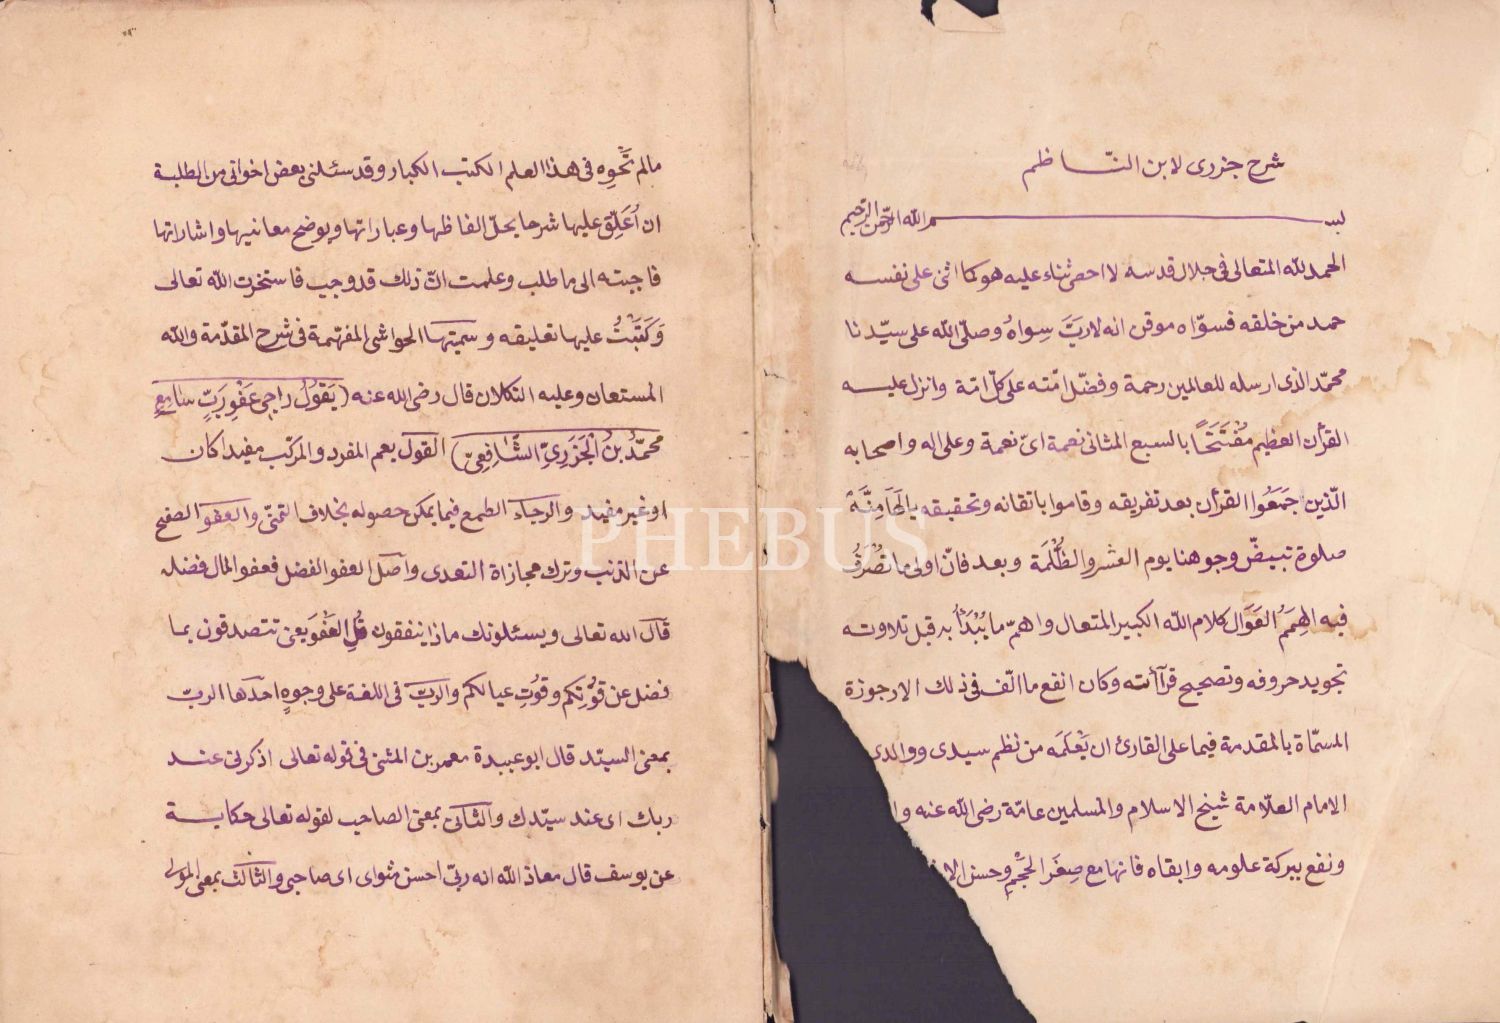 شرح جزری لابن النّاظم
بسم الله الرّحمن الرّحيم
الحمد لله المتعالی فی جلال قدسه لا احصی ثناء عليه هو كما اثنی علی نفسه
حمد من خلقه فسوّاه موقن انه لا ربّ سِواهُ وصلّی الله علی سيّدنا
محمّد الذی ارسله للعالمين رحمة وفضّل امّته علی كلّ امّة وانزل عليه
القرأن العظيم مُفْتَتَحًا بالسبع المثانی نعمة ایّ نعمة وعلی اله واصحابه
الّذين جَمَعُوا القرأن بعد تفريقه وقاموا باتقانه وتحقيقه
صلوة تبيضّ وجوهنا يوم العشر والظُّلْمَة وبعد فانّ اولی ما تُصْرَفُ
فيه الهِمَمُ العَوَال كلام الله الكبير المتعال واهمّ ما يُبْدَأُ به قبل تلاوته
تجويد حروفه وتصحيح قرآأته وكان انفع ما الّف فی ذلك الارجوزة
المسمّاة بالمقدمة فيما علی القارئ ان يَعْلَمَه من نظم سيدی ووالدی
الامام العلّامة شيخ الاسلام والمسلمين عامّة رضی الله عنه وا
ونفع ببركة علومه وابقاه فانها مع صِغَر الحَجْمِ وحسن الا
مالم تَحْوِه فی هذا العلم الكتب الكبار وقد سئلنی بعض اخوانی من الطلبة
ان اُعَلِّق عليها شرحا يحلّ الفاظها وعباراتها ويوضح معانيها واشاراتها
فاجبته الی ما طلب وعلمت انّ ذلك قد وجب فاستخرت الله تعالی
وَكَتَبْتُ عليها تعليقه وسمّيتها الحواشی المفهّمة فی شرح المقدّمة والله
المستعان وعليه التكلان قال رضی الله عنه (يَقُولُ راجِی عَفْوِ رَبٍّ سامِعٍ
محمّدُ بنُ الْجَزَرِیِّ الشّافِعِیّ) القول يعم المفرد والمركّب مفيدا كان
او غير مفيد والرجاء الطمع فيما يمكن حصوله بخلاف التمنّی والعفو الصفح
عن الذنب وترك مجازاة التعدی واصل العفو الفضل فعفو المال فضله
قال الله تعالی ويسئلونك ماذا ينفقون قُلِ العَفْوَ يعنی تتصدقون بما
فضل عن قُوْتِكم وقُوْتِ عيالكم والربّ فی اللغة علی وجوهٍ احدها الربّ
بمعنی السيّد قال ابو عبيدة معمر بن المثنی فی قوله تعالی اذكرنی عند
ربك ای عند سيّدك والثانی بمعنی الصاحب لقوله تعالی حكاية
عن يوسف قال معاذ الله انه ربّی احسن مثوای ای صاحبی والثالث بمعنی المولی
PHEBUS